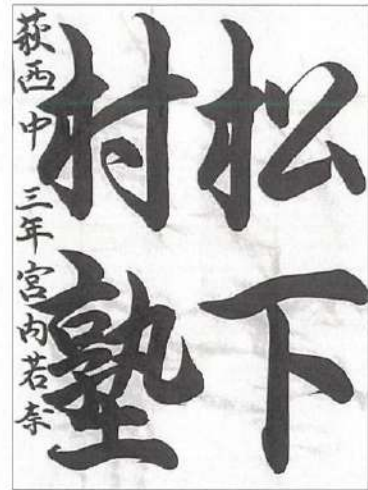 松下
村塾
萩西中 三年 宮内若奈